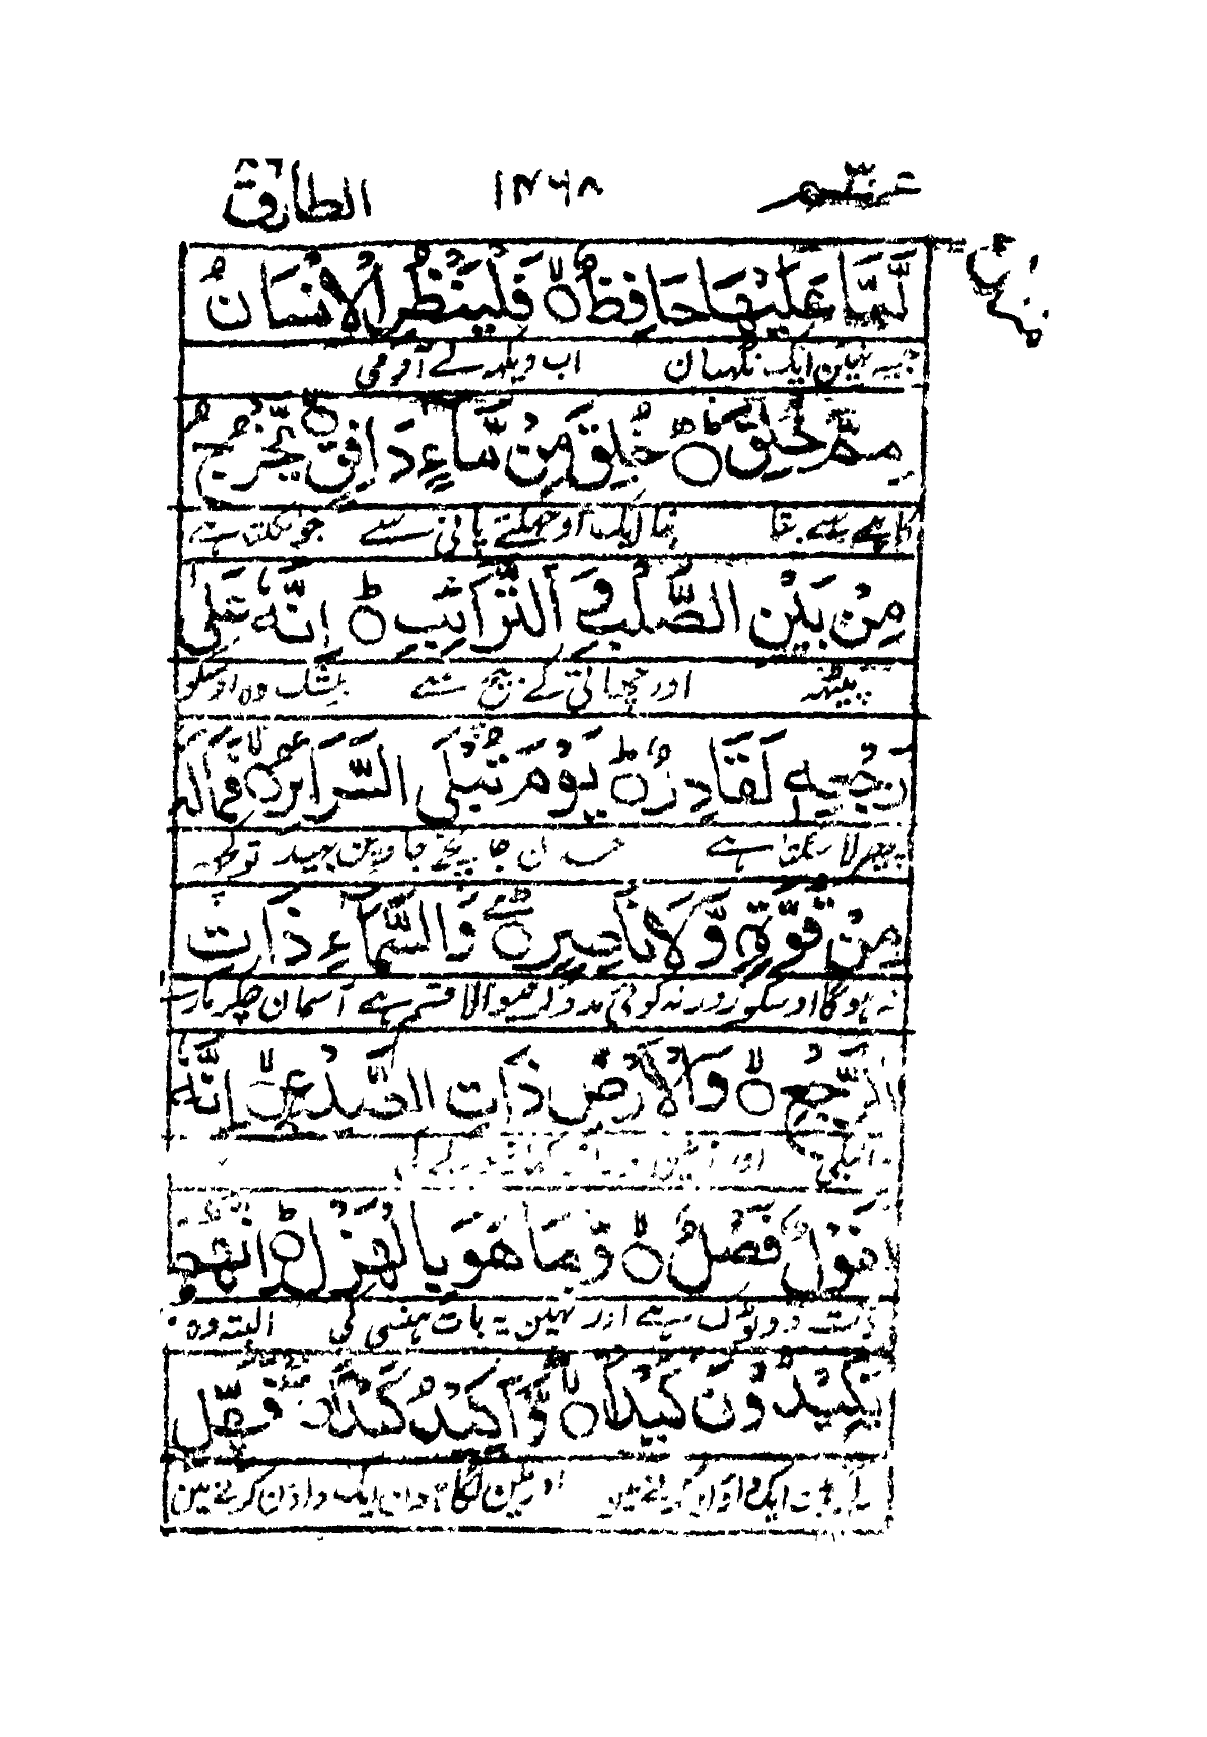 عم ٣٠ ١٢٦٨ الطارق
لَّمَّا عَلَيْهَا حَافِظٌ فَلْيَنْظُرِ الْاِنْسَانُ
نہین ایک نگہبان اب دیکھہ لے آدمی
مِمَّ خُلِقَ خُلِقَ مِنْ مَّآءٍ دَافِقٍ يَّخْرُجُ
کاہے سے بنا بنا ایک اوچھلتے پانی سے جو نکلتا ہے
مِنْ بَيْنِ الصُّلْبِ وَ التَّرَآئِبِ اِنَّهٗ عَلٰى
پیٹھہ اور چھاتی کے بیچ سے بیشک وہ اوسکو
رَجْعِهٖ لَقَادِرٌ يَوْمَ تُبْلَى السَّرَآئِرُ فَمَا لَهٗ
پھیر لا سکتا ہے جس دن جانچے جاوین بھید تو کچھہ
مِنْ قُوَّةٍ وَّلَا نَاصِرٍ وَالسَّمَآءِ ذَاتِ
نہ ہوگا اوسکو زور نہ کوئی مدد کرنیوالا قسم ہے آسمان چکر مارنے
الرَّجْعِ وَالْاَرْضِ ذَاتِ الصَّدْعِ اِنَّهٗ
والیکی اور زمین
لَقَوْلٌ فَصْلٌ وَّمَا هُوَ بِالْهَزْلِ اِنَّهُمْ
بات دو ٹوک ہے اور نہین یہ بات ہنسی کی البتہ وہ
يَكِيْدُوْنَ كَيْدًا وَّاَكِيْدُ كَيْدًا فَمَهِّلِ
ایک داؤ کرنے مین اور مین لگا ہون ایک داؤ کرنے مین